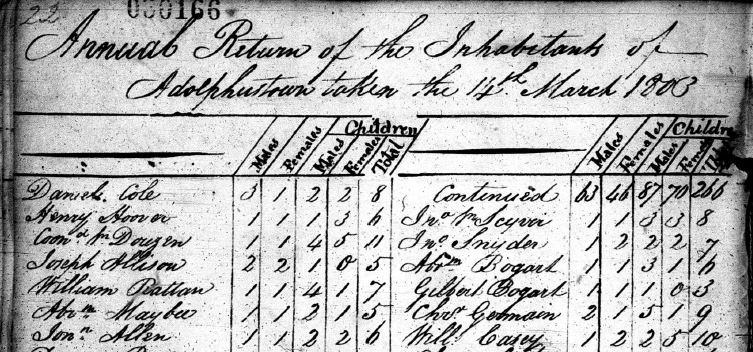 22
000166
Annual Return of the Inhabitants of
Adolphustown taken the 14th March 1803
Males Females Children Males Females Total
Males Females Children Males Females Total
Daniel Cole 3 1 2 2 8
Continued 63 46 87 70 266
Henry Hoover 1 1 1 3 6
Jno Vn Scyver 1 1 3 3 8
Coond Vn Douzen 1 1 4 5 11
Jno Snyder 1 2 2 2 7
Joseph Allison 2 2 1 0 5
Abrm Bogart 1 1 3 1 6
William Rattan 1 1 4 1 7
Gilbert Bogart 1 1 1 0 3
Abrm Maybee 1 1 2 1 5
Chrsr Germain 2 1 5 1 9
Jonn Allen 1 1 2 2 6
Willm Casey 1 2 2 5 10